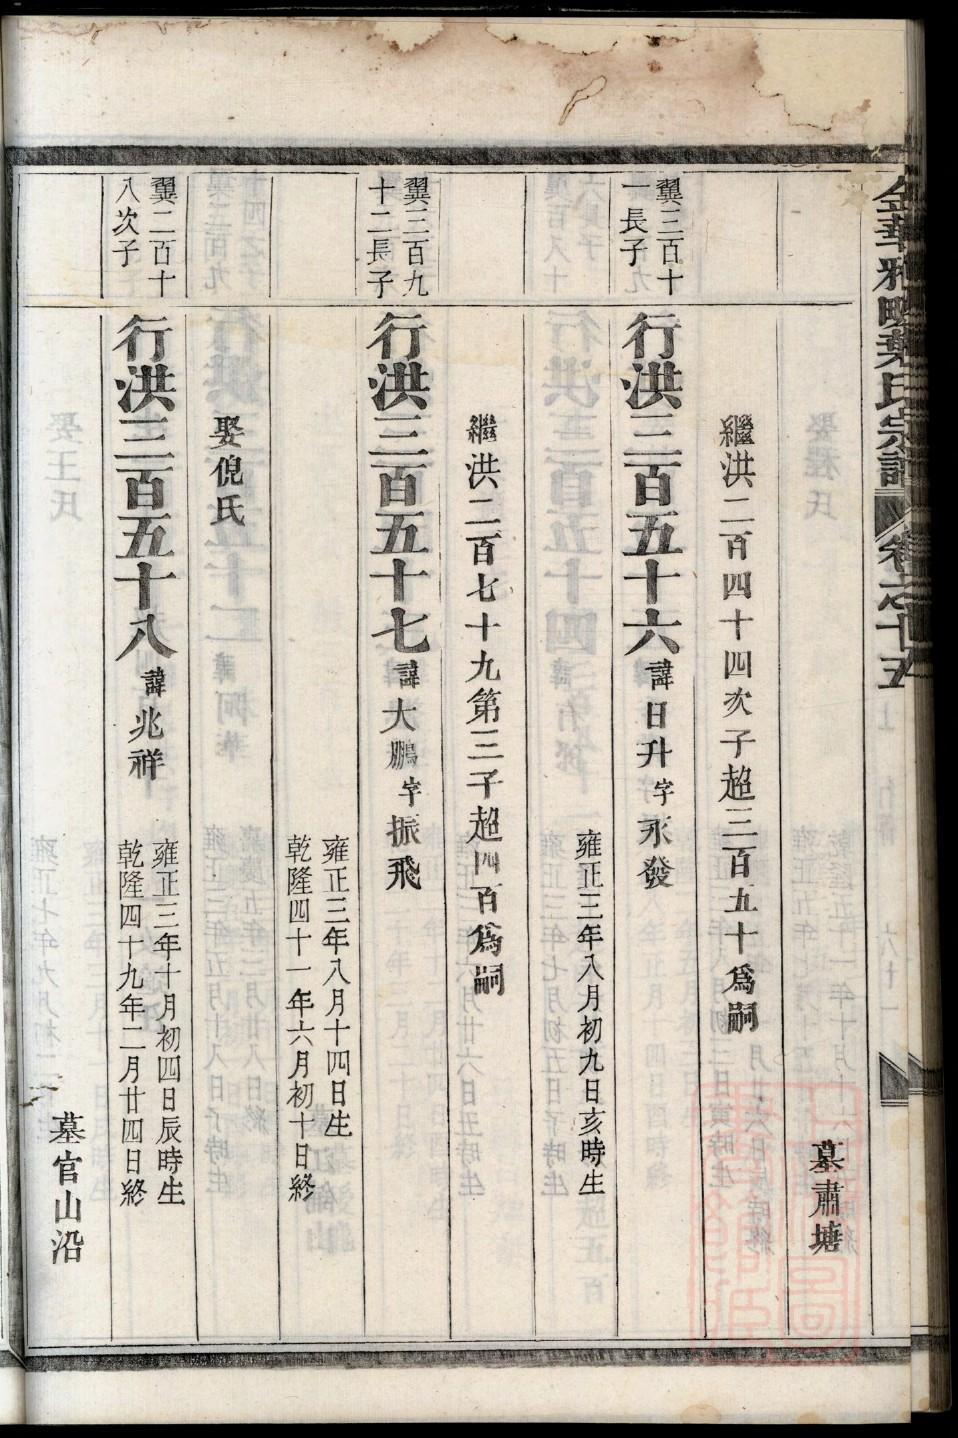 金華雅畈葉氏宗譜 卷之十五
墓肅塘
繼洪二百四十四次子超三百五十爲嗣
翼三百十
一長子
行洪三百五十六 諱日升 字永發
雍正三年八月初九日亥時生
繼洪二百七十九第三子超四百爲嗣
翼三百九
十二長子
行洪三百五十七 諱大鵬 字振飛
雍正三年八月十四日生
乾隆四十一年六月初十日終
娶倪氏
翼二百十
八次子
行洪三百五十八 諱兆祥
雍正三年十月初四日辰時生
乾隆四十九年二月廿四日終
墓官山沿